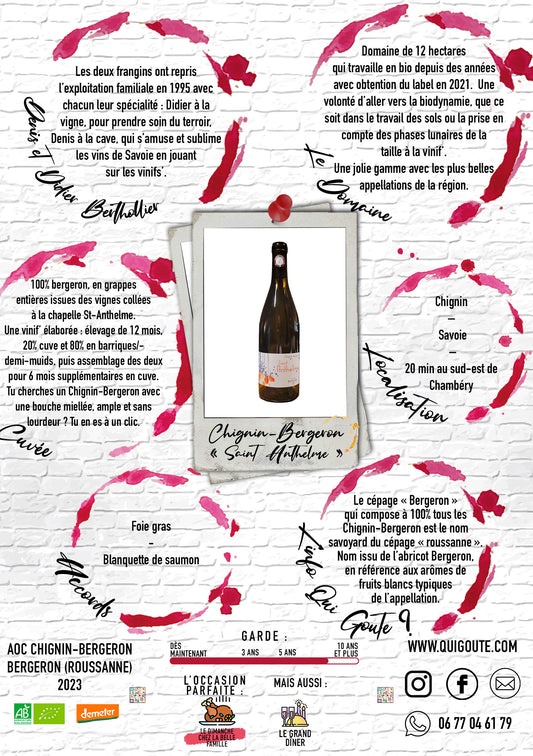 Les deux frangins ont repris
l'exploitation familiale en 1995 avec
chacun leur spécialité : Didier à la
vigne, pour prendre soin du terroir,
Denis à la cave, qui s'amuse et sublime
les vins de Savoie en jouant
sur les vinifs'.
Denis et Didier Berthollier
Domaine de 12 hectares
qui travaille en bio depuis des années
avec obtention du label en 2021. Une
volonté d'aller vers la biodynamie, que ce
soit dans le travail des sols ou la prise en
compte des phases lunaires de la
taille à la vinif'.
Une jolie gamme avec les plus belles
appellations de la région.
Le Domaine
100% bergeron, en grappes
entières issues des vignes collées
à la chapelle St-Anthelme.
Une vinif' élaborée : élevage de 12 mois,
20% cuve et 80% en barriques/-
demi-muids, puis assemblage des deux
pour 6 mois supplémentaires en cuve.
Tu cherches un Chignin-Bergeron avec
une bouche miellée, ample et sans
lourdeur ? Tu en es à un clic.
Cuvée
Chignin-Bergeron
« Saint Anthelme »
Chignin
–
Savoie
–
20 min au sud-est de
Chambéry
Localisation
Foie gras
–
Blanquette de saumon
Accords
Le cépage « Bergeron »
qui compose à 100% tous les
Chignin-Bergeron est le nom
savoyard du cépage « roussanne ».
Nom issu de l'abricot Bergeron,
en référence aux arômes de
fruits blancs typiques
de l'appellation.
L'info Qui Goute ?
AOC CHIGNIN-BERGERON
BERGERON (ROUSSANNE)
2023
AB
demeter
GARDE :
DÈS
MAINTENANT
3 ANS
5 ANS
10 ANS
ET PLUS
L'OCCASION
PARFAITE :
LE DIMANCHE
CHEZ LA BELLE
FAMILLE
MAIS AUSSI :
LE GRAND
DÎNER
WWW.QUIGOUTE.COM
06 77 04 61 79